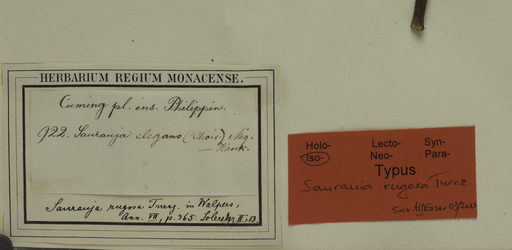 HERBARIUM REGIUM MONACENSE.
Cuming pl. ins. Philippin.
922. Saurauja elegans (Chois.)
Saurauja rugosa Turcz. in Walpers,
Ann. VII, p. 365. Solereder
Holo- Lecto- Syn-
Iso- Neo- Para-
Typus
Saurauia rugosa Turcz.